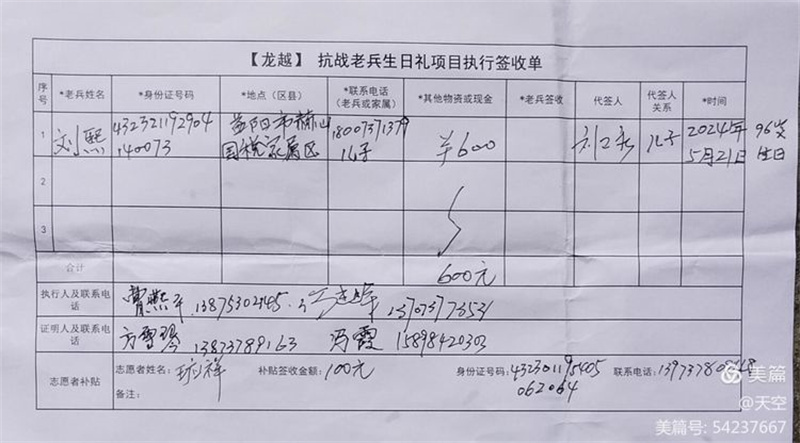 【龙越】 抗战老兵生日礼项目执行签收单
序号 *老兵姓名 *身份证号码 *地点（区县） *联系电话（老兵或家属） *其他物资或现金 *老兵签收 代签人 代签人关系 *时间
1 刘熙 432321192904140073 益阳市赫山国税家属区 18007371379 儿子 ¥600 儿子 2024年5月21日 96岁生日
2
3
合计 600元
执行人及联系电话 13875302145 13707377353
证明人及联系电话 方雪琴 13873789163 冯霞 15898420303
志愿者补贴 志愿者姓名： 祥 补贴签收金额：100元 身份证号码：432301195405062064 联系电话：
备注：
美篇
@天空
美篇号: 54237667